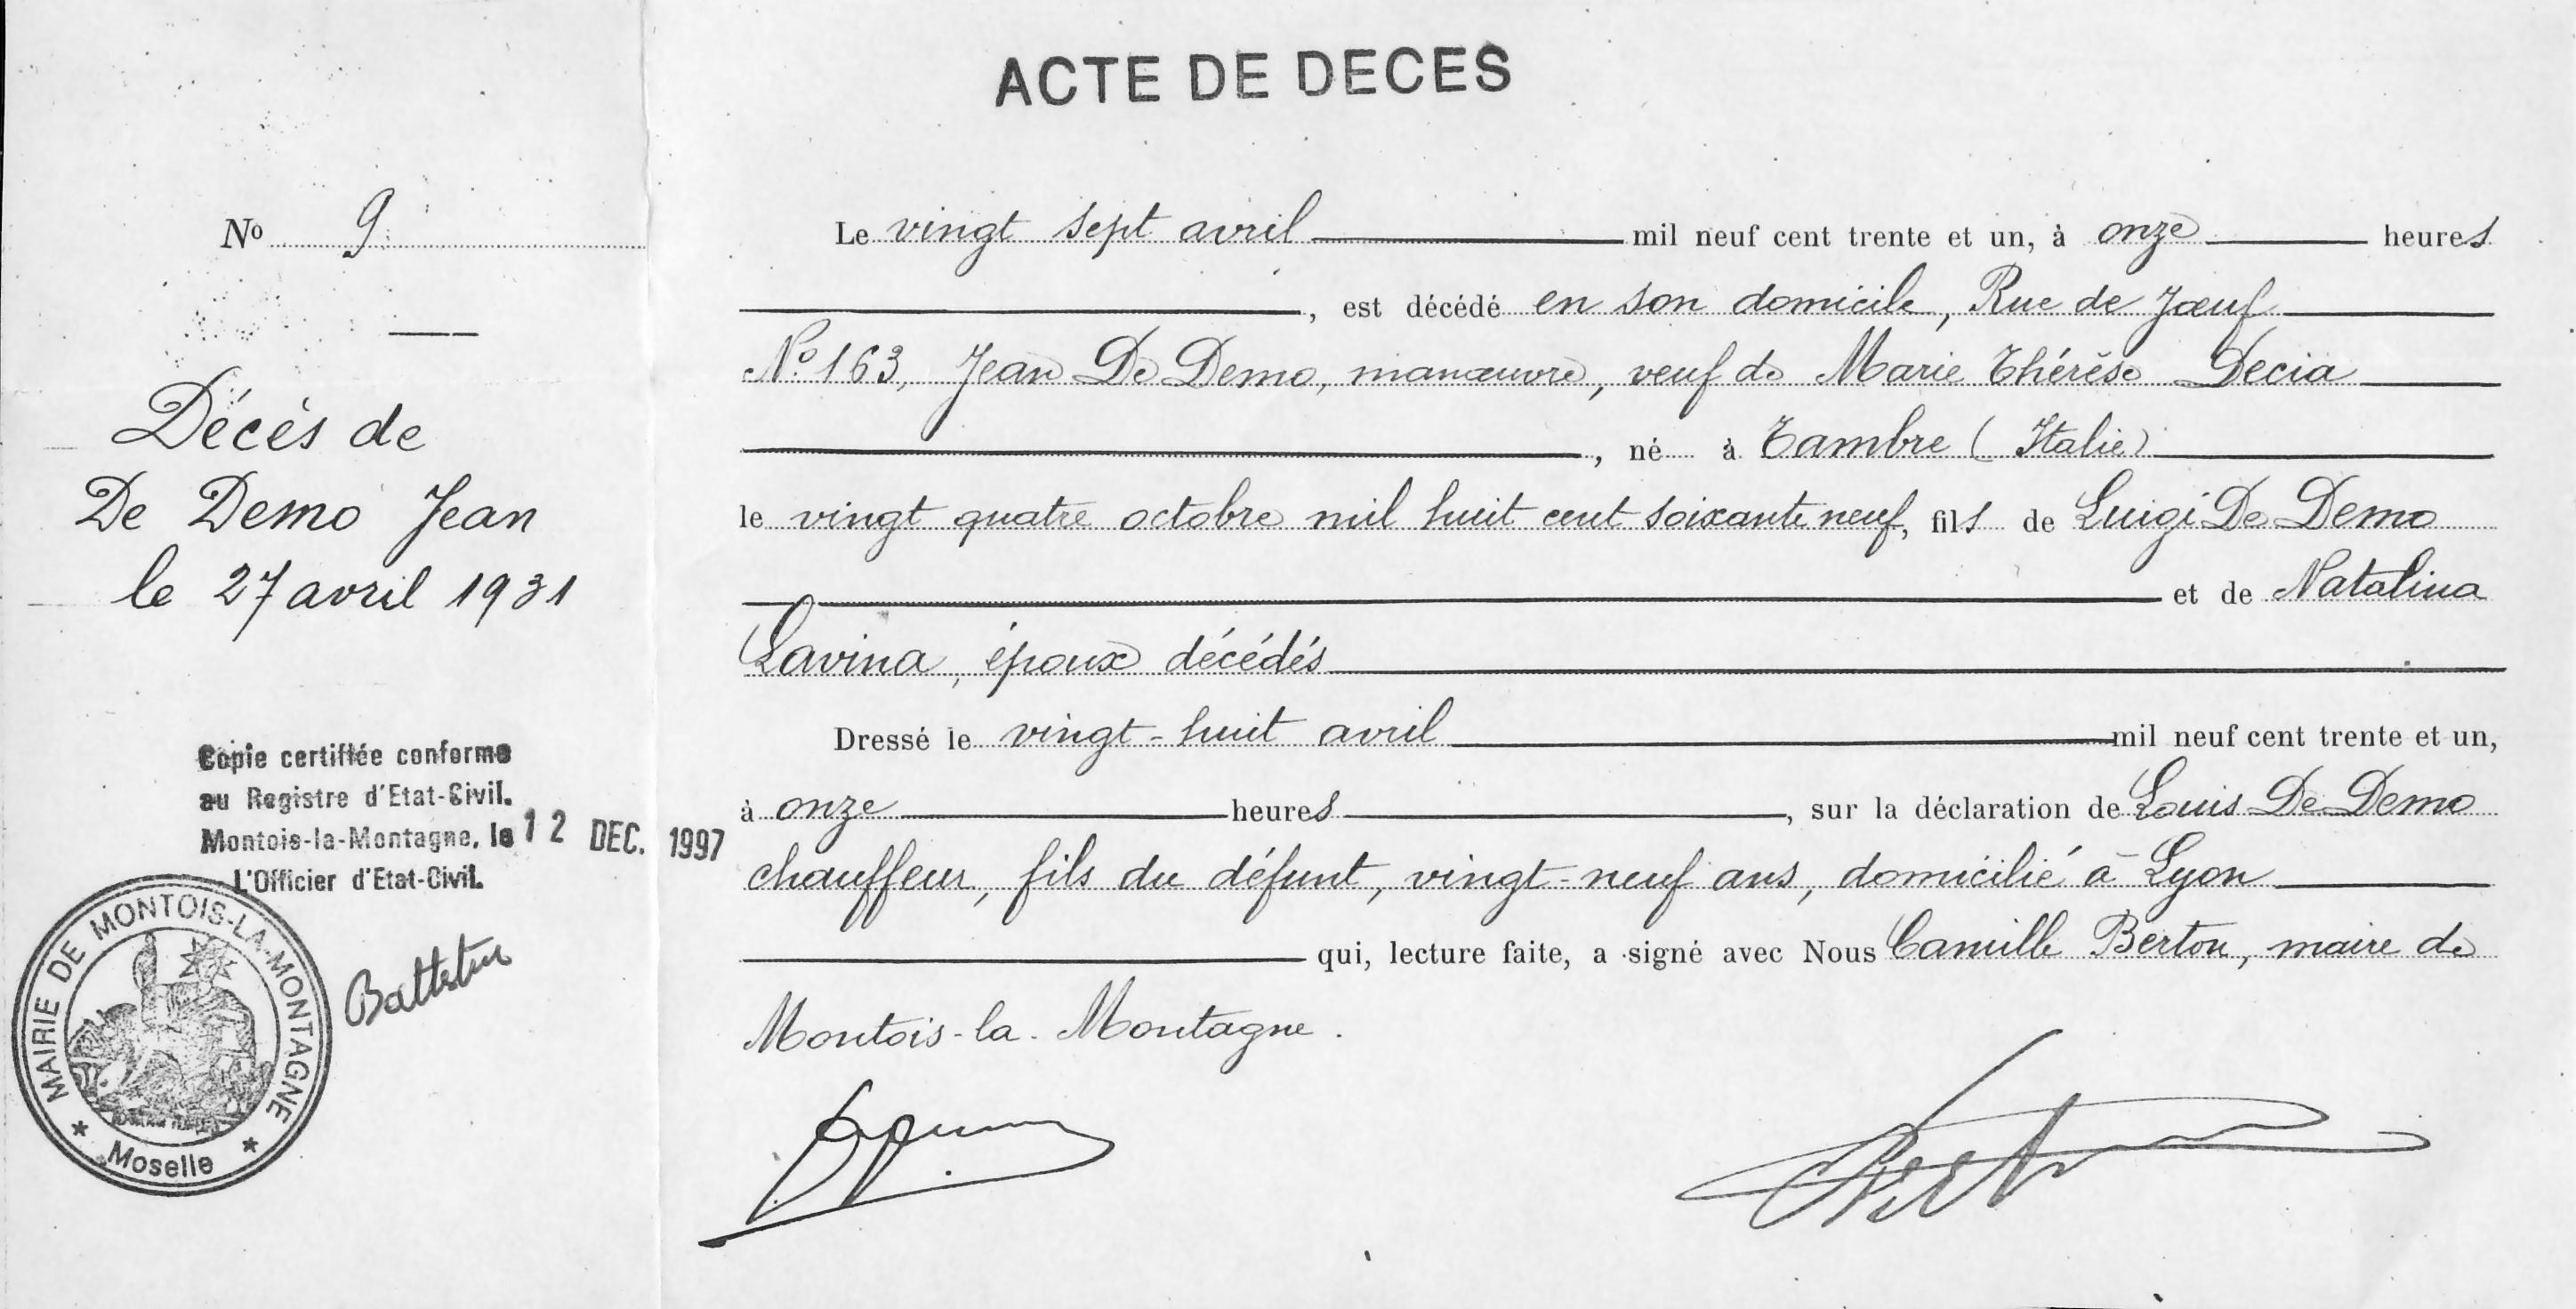 ACTE DE DECES
No 9
Décès de
De Demo Jean
le 27 avril 1931
Copie certifiée conforme
au Registre d'Etat-Civil.
Montois-la-Montagne, le 12 DEC. 1997
L'Officier d'Etat-Civil.
MAIRIE DE MONTOIS-LA-MONTAGNE
* Moselle *
Le vingt sept avril mil neuf cent trente et un, à onze heures
, est décédé en son domicile, Rue de Joeuf
No 163, Jean De Demo, manœuvre, veuf de Marie Thérèse Decia
, né à Tambre (Italie)
le vingt quatre octobre mil huit cent soixante neuf, fils de Luigi De Demo
et de Natalina
Lavina, époux décédés
Dressé le vingt-huit avril mil neuf cent trente et un,
à onze heures, sur la déclaration de Louis De Demo
chauffeur, fils du défunt, vingt-neuf ans, domicilié à Lyon
qui, lecture faite, a signé avec Nous Camille Berton, maire de
Montois-la-Montagne.